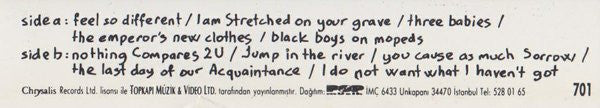 side a : feel so different / I am Stretched on your grave / three babies /
the emperor's new clothes / black boys on mopeds
side b : nothing Compares 2U / Jump in the river / you cause as much Sorrow /
the last day of our Acquaintance / I do not want what I haven't got
Chrysalis Records Ltd. lisansı ile TOPKAPI MÜZİK & VİDEO LTD. tarafından yayınlanmıştır. Dağıtım: İMC 6433 Unkapanı 34470 İstanbul Tel: 528 01 65 701